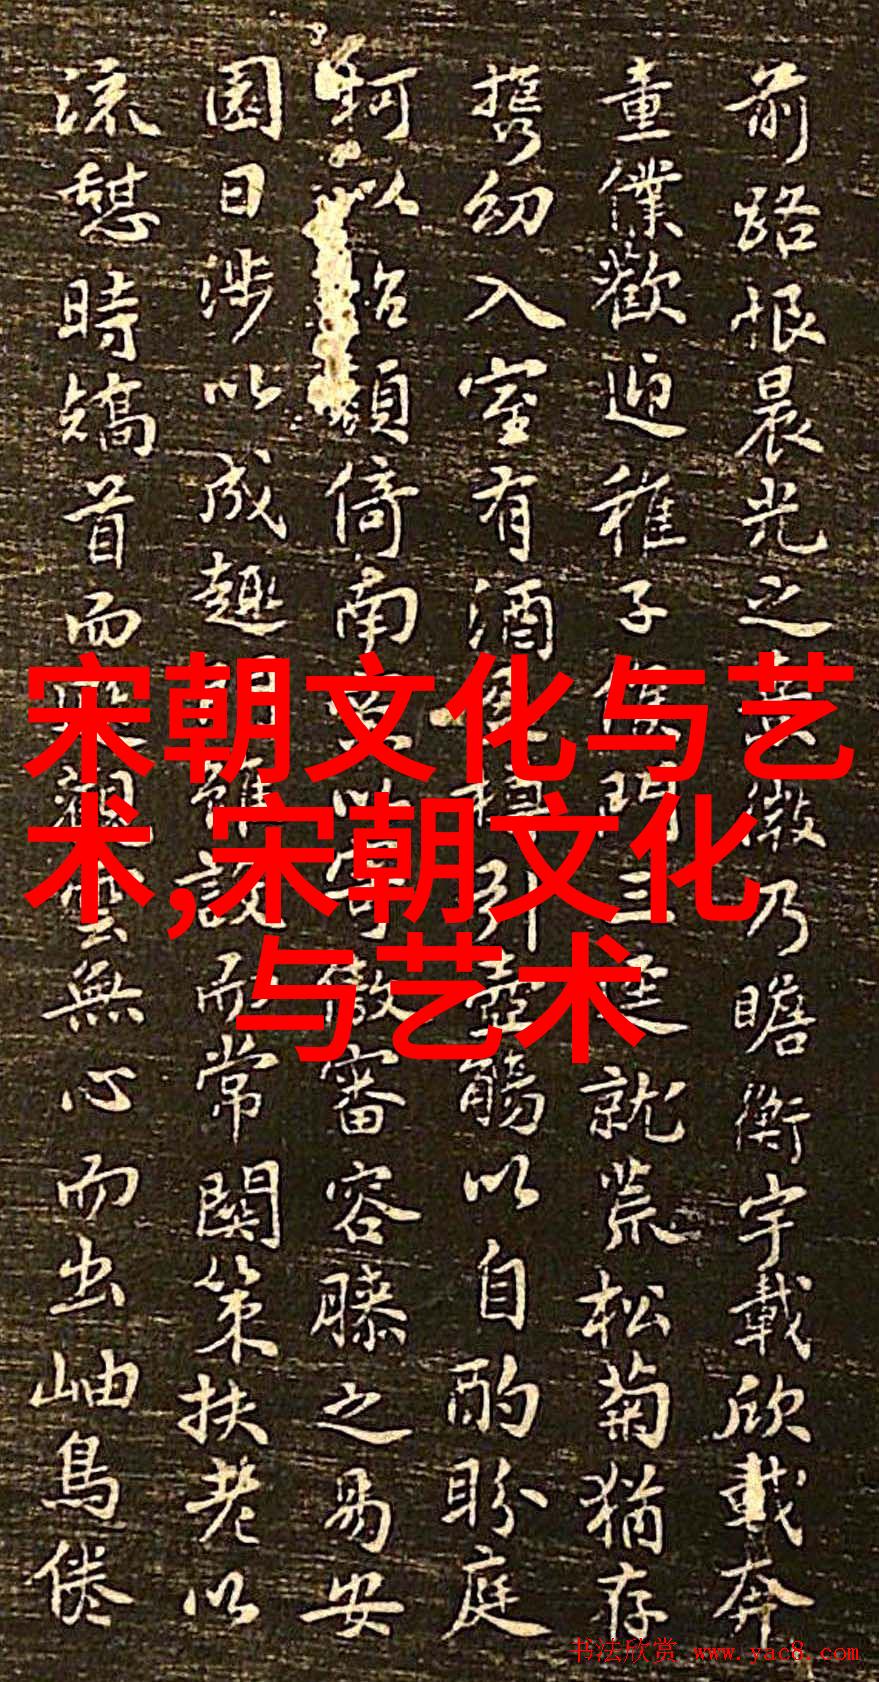 前路恨晨光之微乃瞻衡宇載欣載奔
童僕歡迎稚子候門三徑就荒松菊猶存
携幼入室有酒樽引壺觴以自酌盼庭
柯以怡顔倚南窓以寄傲審容膝之易安
園日涉以成趣門雖設而常関策扶老以
流憩時矯首而遐觀雲無心而出岫鳥倦
宋朝文化与艺
术,宋朝文化
与艺术
书法欣赏 www.yac8.com